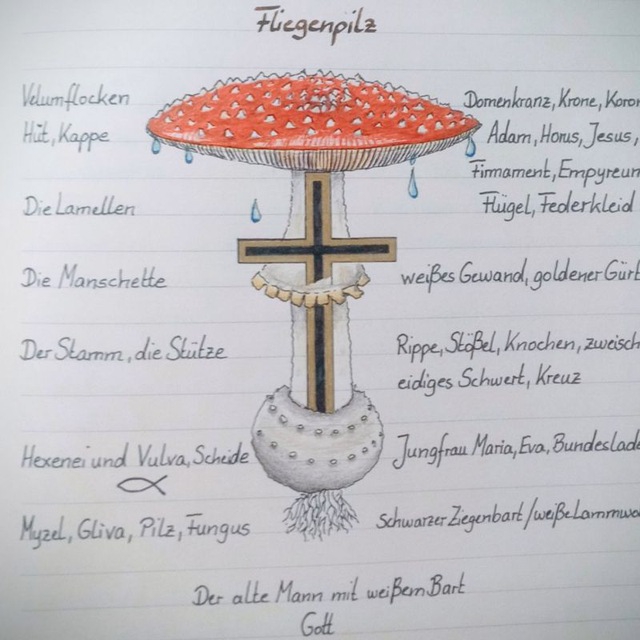 Fliegenpilz
Velumflocken
Dornenkranz, Krone, Koron
Hut, Kappe
Adam, Horus, Jesus,
Firmament, Empyreum
Die Lamellen
Flügel, Federkleid
Die Manschette
weißes Gewand, goldener Gürt
Der Stamm, die Stütze
Rippe, Stößel, Knochen, zweisch
eidiges Schwert, Kreuz
Hexenei und Vulva, Scheide
Jungfrau Maria, Eva, Bundeslade
Myzel, Gliva, Pilz, Fungus
Schwarzer Ziegenbart / weiße Lammwo
Der alte Mann mit weißem Bart
Gott